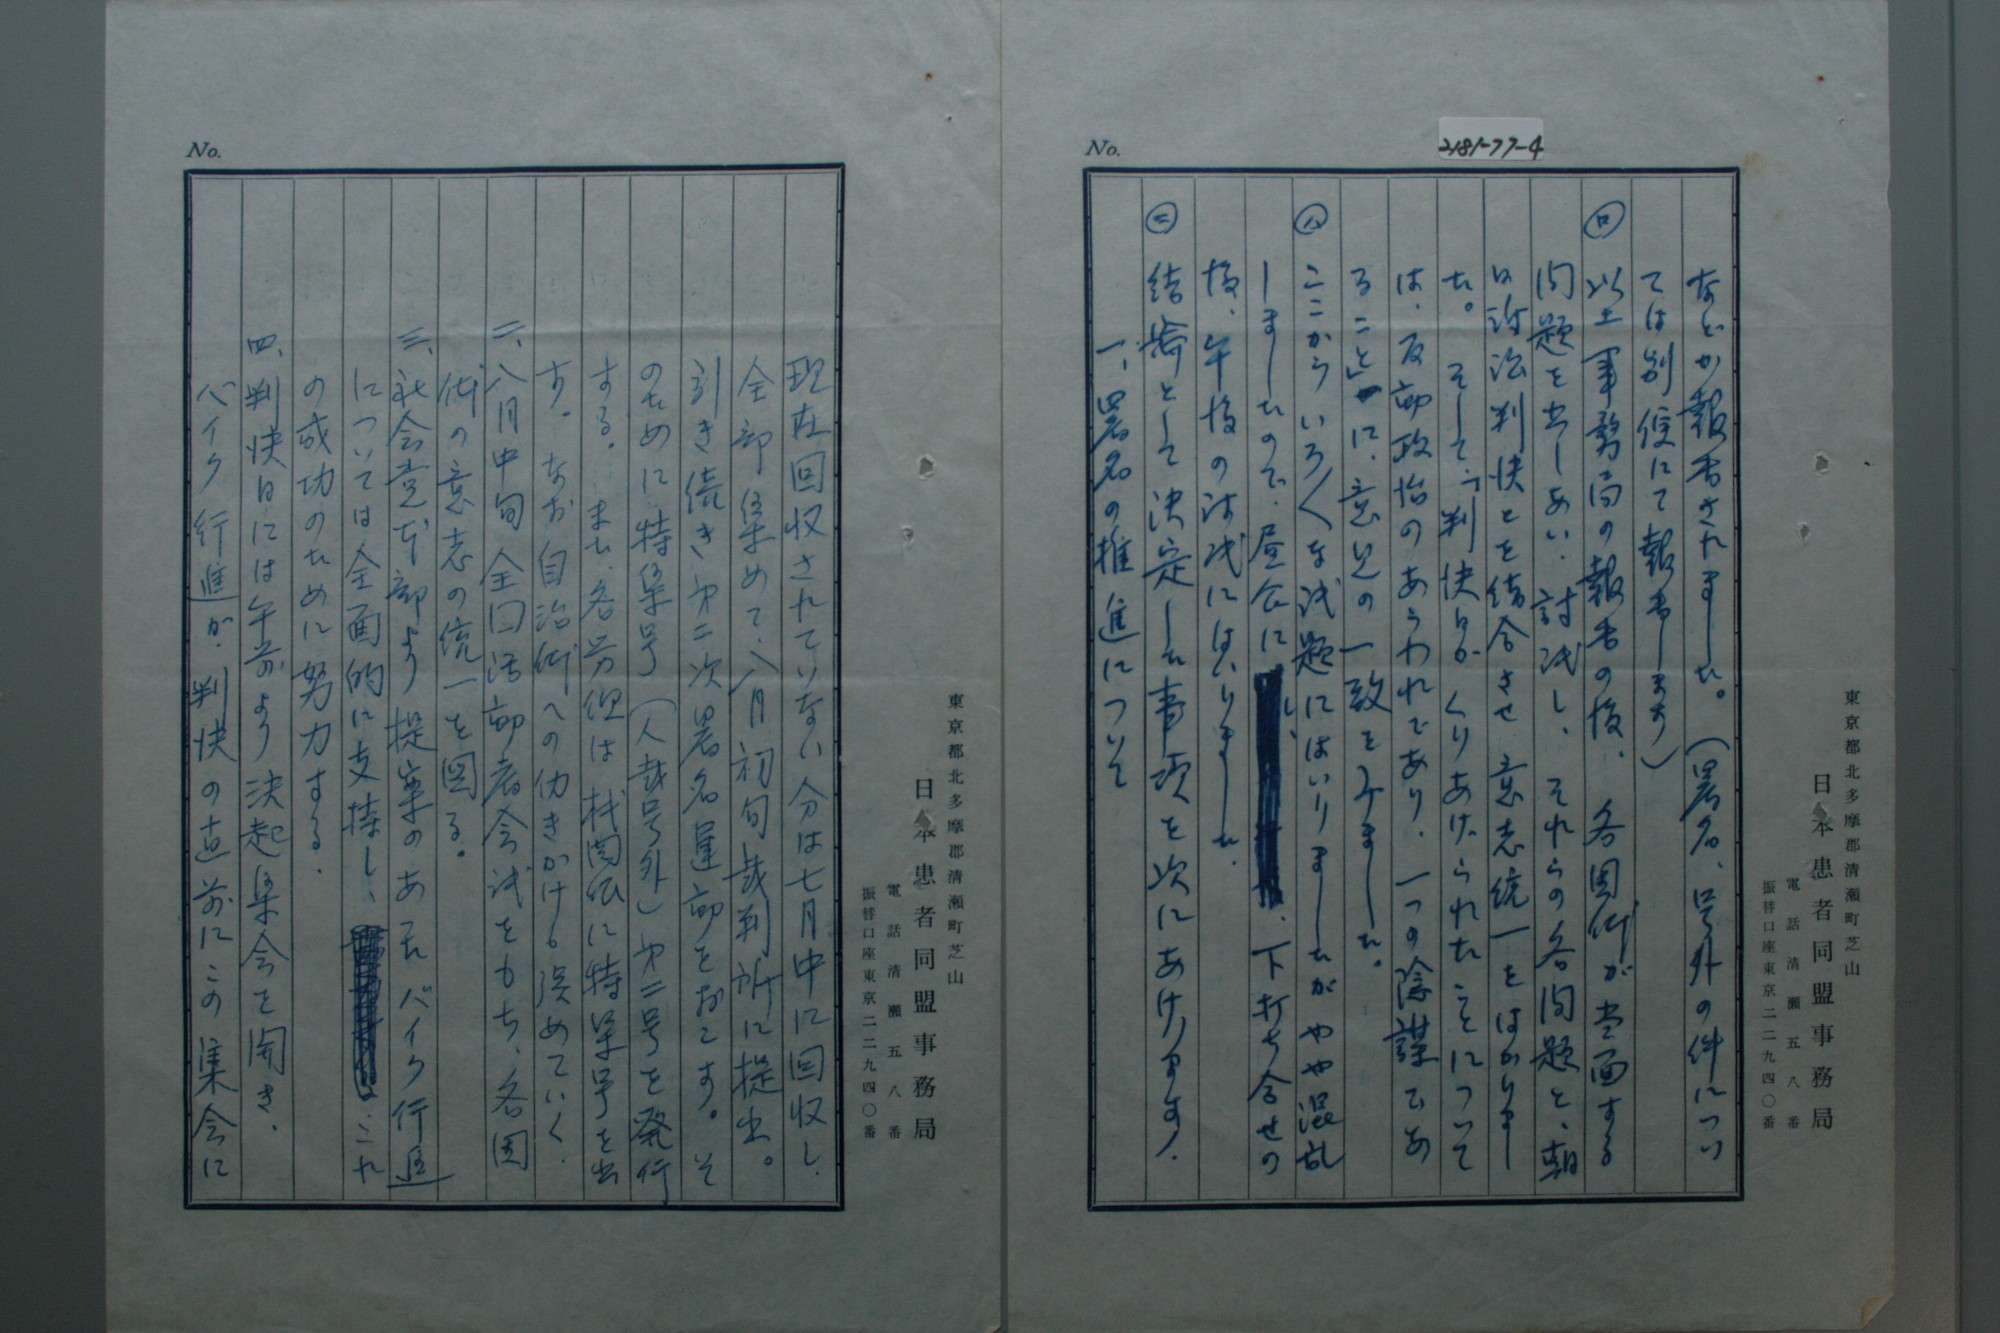 No.
2181-77-4
東京都北多摩郡清瀬町芝山
日本患者同盟事務局
電話清瀬五八番
振替口座東京二二九四〇番
などが報告されました。(署名、号外の件につい
ては別便にて報告します)
㋺ 以上事務局の報告の後、各団体が当面する
問題を出しあい、討議し、それらの各問題と、朝
日訴訟判決とを結合させ意志統一をはかりまし
た。そして、「判決日がくりあげられたことについて
は、反動政治のあらわれであり、一つの陰謀であ
ること」に、意見の一致をみました。
㋩ ここからいろ〱な議題にはいりましたがやや混乱
しましたので、昼食にし、下打ち合せの
後、午後の討議にはいりました。
㋥ 結論として決定した事項を次にあげます。
一、署名の推進について
No.
東京都北多摩郡清瀬町芝山
日本患者同盟事務局
電話清瀬五八番
振替口座東京二二九四〇番
現在回収されていない分は七月中に回収し、
全部集めて、八月初旬裁判所に提出。
引き続き第二次署名運動をおこす。そ
のために特集号(人裁号外)第二号を発行
する。また、各労組は機関紙に特集号を出
す。なお自治体への働きかけも強めていく。
二、八月中旬全国活動者会議をもち、各団
体の意志の統一を図る。
三、社会党本部より提案のあったバイク行進
については全面的に支持し、これ
の成功のために努力する。
四、判決日には午前より決起集会を開き、
バイク行進が、判決の直前にこの集会に